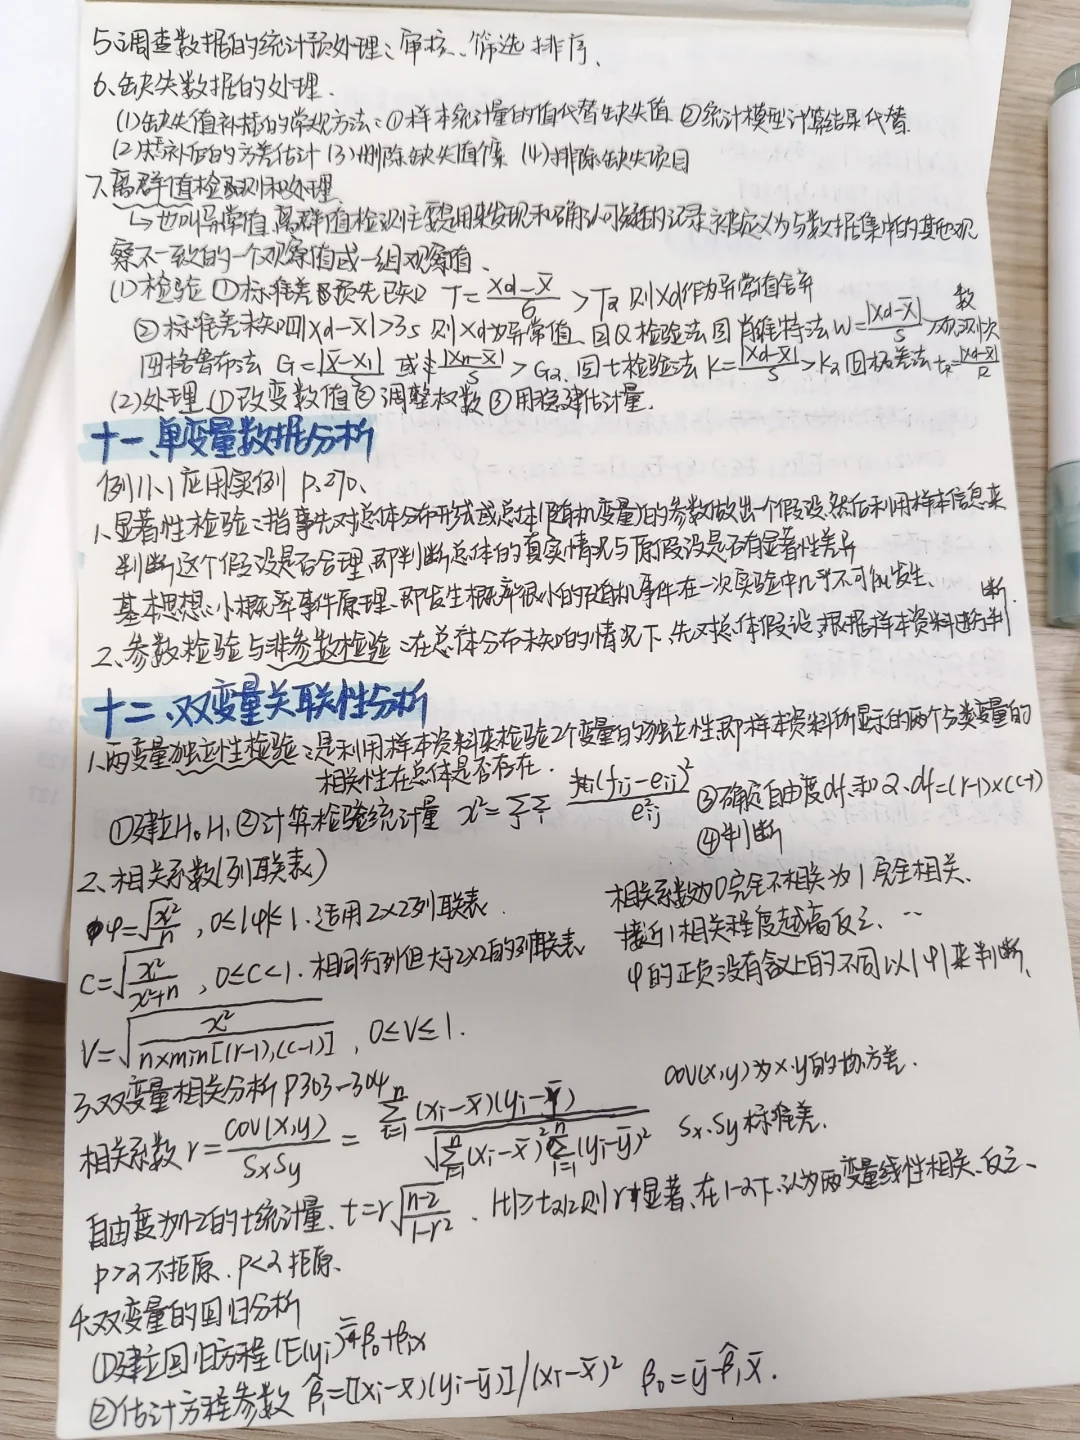 5、调查数据的统计预处理:审核、筛选、排序、
6、缺失数据的处理.
(1)缺失值补插的常规方法:①样本统计量的值代替缺失值 ②统计模型计算结果代替.
(2)插补后的方差估计 (3)删除缺失值个案 (4)排除缺失项目
7、离群值检测和处理
↳也叫异常值,离群值检测主要是用来发现和确认可疑的记录,被定义为与数据集中的其他观
察不一致的一个观察值或一组观察值、
(1)检验 ①标准差σ预先已知 T=(Xd-X̄)/σ >Tα 则Xd作为异常值舍弃
②标准差未知 |Xd-X̄|>3s 则Xd为异常值 Q检验法 肖维特法 W=|Xd-X̄|/S >观测次数
格鲁布法 G=|X̄-X₁|/S 或 |Xn-X̄|/S > Gα. t检验法 K=|Xd-X̄|/S >Kα 极差法 t=|Xd-X̄|/R
(2)处理 ①改变数值 ② 调整权数 ③用稳健估计量.
十一、单变量数据分析
例11、1 应用实例 P.270、
1、显著性检验:指事先对总体分布形式或总体(随机变量)的参数做出一个假设,然后利用样本信息来
判断这个假设是否合理,即判断总体的真实情况与原假设是否有显著性差异
基本思想:小概率事件原理、即发生概率很小的随机事件在一次实验中几乎不可能发生、
2、参数检验与非参数检验:在总体分布未知的情况下,先对总体假设,根据样本资料进行判断.
十二、双变量关联性分析
1、两变量独立性检验:是利用样本资料来检验2个变量的独立性,即样本资料所显示的两个分类变量的
相关性在总体是否存在.
①建立H₀ H₁ ②计算检验统计量 x²=ΣΣ (fij-eij)²/e²ij ③确定自由度df 和α. df=(r-1)×(c-1)
④判断
2、相关系数(列联表)
φ=√(x²/n) , 0≤|φ|≤1. 适用2×2列联表.
相关系数为0完全不相关 为1完全相关、
C=√(x²/(x²+n)) , 0≤C<1. 相同行列但大于2×2的列联表
接近1相关程度越高反之. ··
φ的正负没有含义上的不同 以|φ|来判断、
V=√(x²/(n×min[(r-1),(c-1)])) , 0≤V≤1.
3、双变量相关分析 P303-304
cov(x,y)为x.y的协方差.
相关系数r=cov(x,y)/SxSy = Σⁿᵢ₌₁(xi-x̄)(yi-ȳ)/√(Σⁿᵢ₌₁(xi-x̄)²Σⁿᵢ₌₁(yi-ȳ)²)
Sx.Sy标准差.
自由度为n-2的t统计量、t=r√((n-2)/(1-r²)) 、|t|≥tα/2 则r显著,在1-α下、认为两变量线性相关、反之、
p>α不拒原 . p<α拒原、
4、双变量的回归分析
①建立回归方程 (E(yi)=β₀+β₁x
②估计方程参数 β̂₁=[(xi-x̄)(yi-ȳ)]/(xi-x̄)² β₀=ȳ-β̂₁x̄.